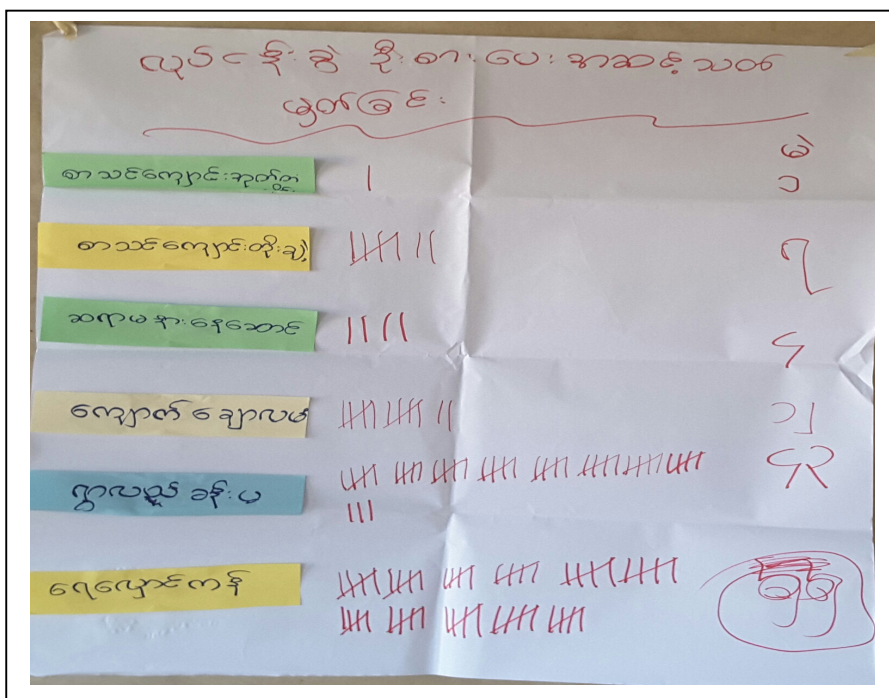 လုပ်ငန်းခွဲ ဦးစားပေး အဆင့်သတ်
မှတ်ခြင်း
မဲ
စာသင်ကျောင်း ၁
စာသင်ကျောင်းတိုးချဲ့ ၇
ဆရာမနားနေဆောင် ၄
ကျောက်ချောလမ်း ၁၂
ရွာလည်ခန်းမ ၄၃
ရေလှောင်ကန် ၅၅